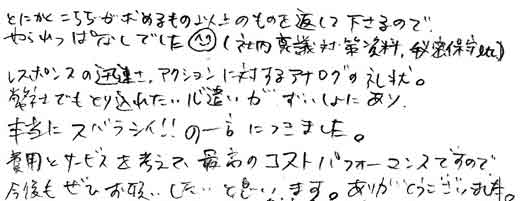 とにかくこちらが求めるもの以上のものを返して下さるので
やられっぱなしでした(社内稟議対策資料,秘密保守etc)
レスポンスの迅速さ,アクションに対するアナログの礼状。
弊社でもとり入れたい心遣いがずいしょにあり、
本当にスバラシイ!!の一言につきました。
費用とサービスを考えて、最高のコストパフォーマンスですので
今後もぜひお願いしたいと思います。ありがとうございました。